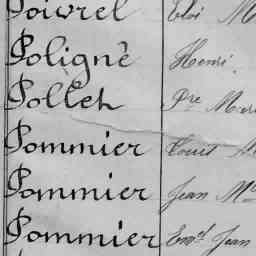 Poivrel Eloi M
Poligné Henri
Pollet Pre Mar
Pommier Louis M
Pommier Jean Me
Pommier Eml Jean